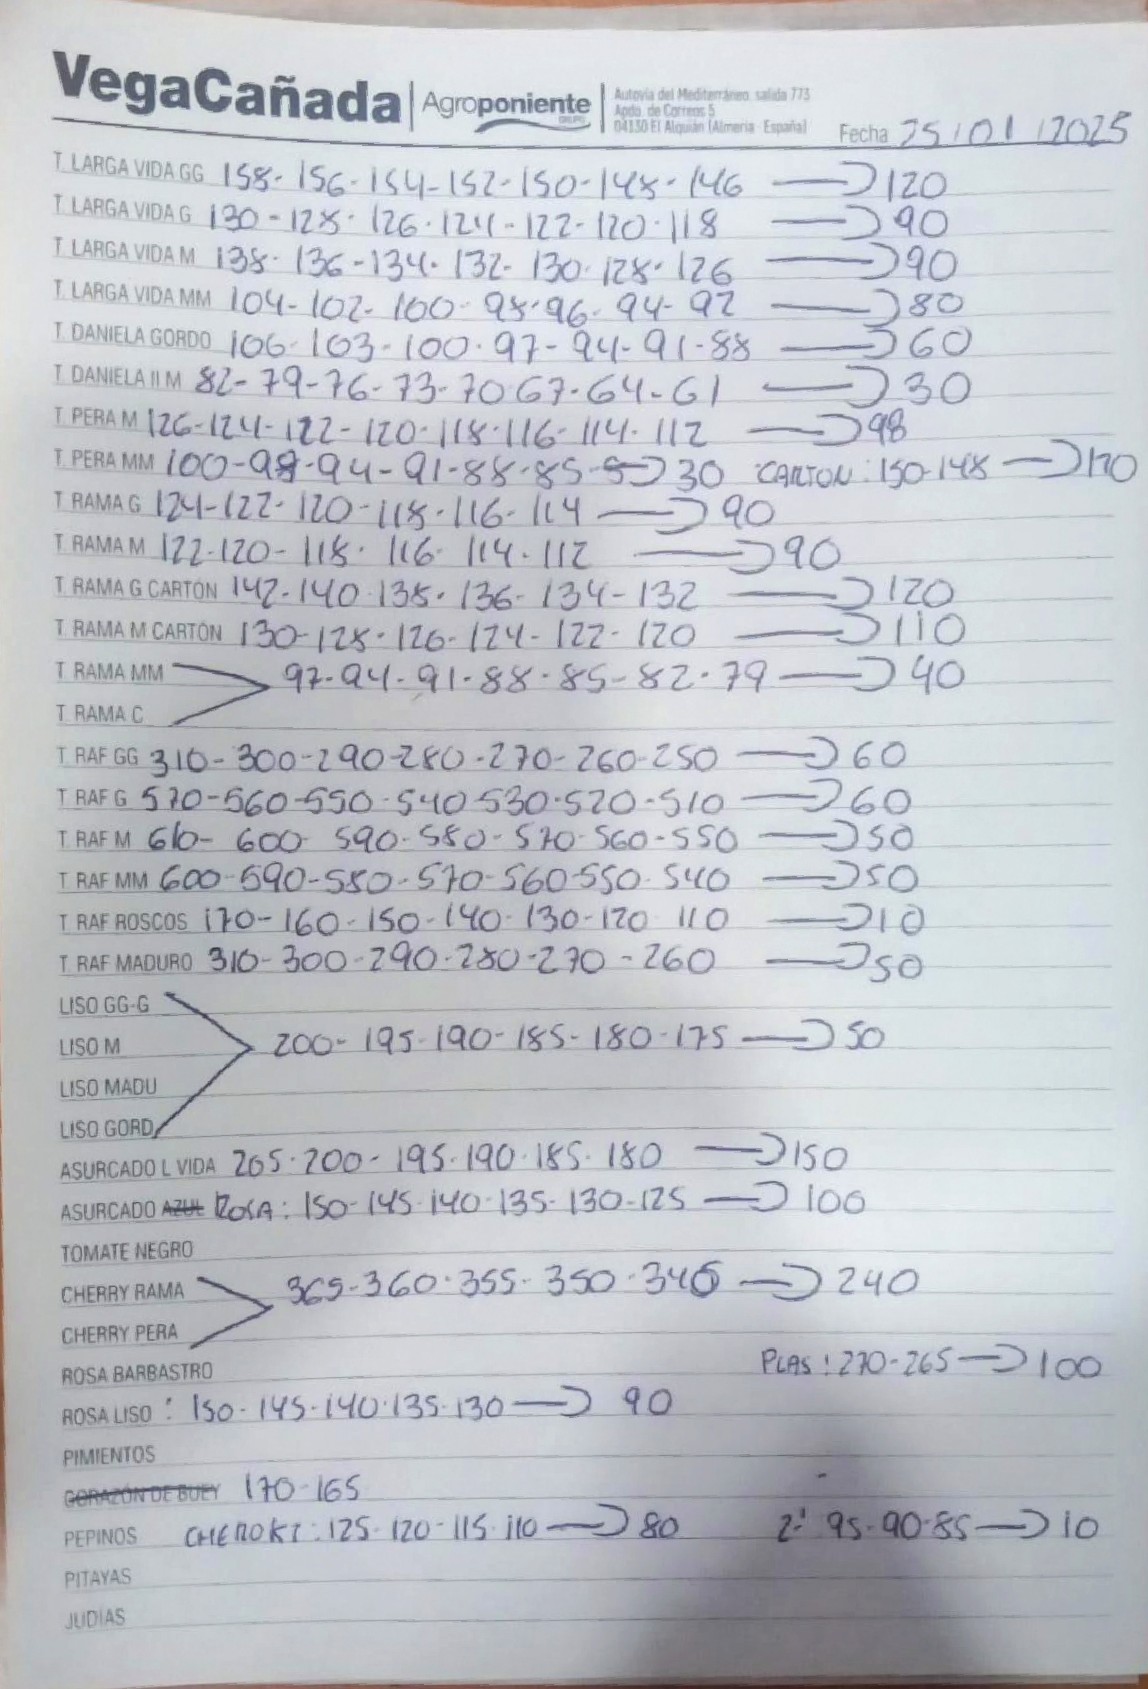 VegaCañada | Agroponiente GRUPO | Autovía del Mediterráneo, salida 773
Apdo. de Correos 5
04130 El Alquián (Almería - España)
Fecha 25/01/2025
T. LARGA VIDA GG 158-156-154-152-150-148-146 → 120
T. LARGA VIDA G 130-128-126-124-122-120-118 → 90
T. LARGA VIDA M 138-136-134-132-130-128-126 → 90
T. LARGA VIDA MM 104-102-100-98-96-94-92 → 80
T. DANIELA GORDO 106-103-100-97-94-91-88 → 60
T. DANIELA II M 82-79-76-73-70-67-64-61 → 30
T. PERA M 126-124-122-120-118-116-114-112 → 98
T. PERA MM 100-98-94-91-88-85- → 30 CARTON: 150-148 → 120
T. RAMA G 124-122-120-118-116-114 → 90
T. RAMA M 122-120-118-116-114-112 → 90
T. RAMA G CARTÓN 142-140-138-136-134-132 → 120
T. RAMA M CARTÓN 130-128-126-124-122-120 → 110
T. RAMA MM 97-94-91-88-85-82-79 → 40
T. RAMA C
T. RAF GG 310-300-290-280-270-260-250 → 60
T. RAF G 570-560-550-540-530-520-510 → 60
T. RAF M 610-600-590-580-570-560-550 → 50
T. RAF MM 600-590-580-570-560-550-540 → 50
T. RAF ROSCOS 170-160-150-140-130-120-110 → 10
T. RAF MADURO 310-300-290-280-270-260 → 50
LISO GG-G
LISO M 200-195-190-185-180-175 → 50
LISO MADU
LISO GORD
ASURCADO L VIDA 265-200-195-190-185-180 → 150
ASURCADO AZUL ROSA: 150-145-140-135-130-125 → 100
TOMATE NEGRO
CHERRY RAMA 365-360-355-350-345 → 240
CHERRY PERA
ROSA BARBASTRO PLAS: 270-265 → 100
ROSA LISO: 150-145-140-135-130 → 90
PIMIENTOS
CORAZÓN DE BUEY 170-165
PEPINOS CHEROKI: 125-120-115-110 → 80 2ª 95-90-85 → 10
PITAYAS
JUDIAS